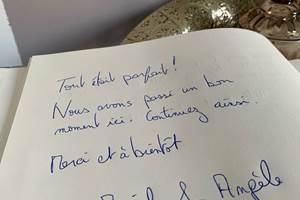 Tout était parfait !
Nous avons passé un bon
moment ici. Continuez ainsi.
Merci et à bientôt
& Angèle